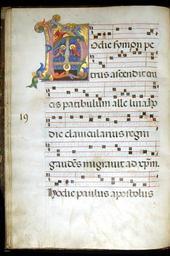 Hodie symon pe
trus ascendit cru
cis patibulum alle luia
19
die clavicularius regni
gaudens migravit ad xpm.
Hodie paulus apostolus